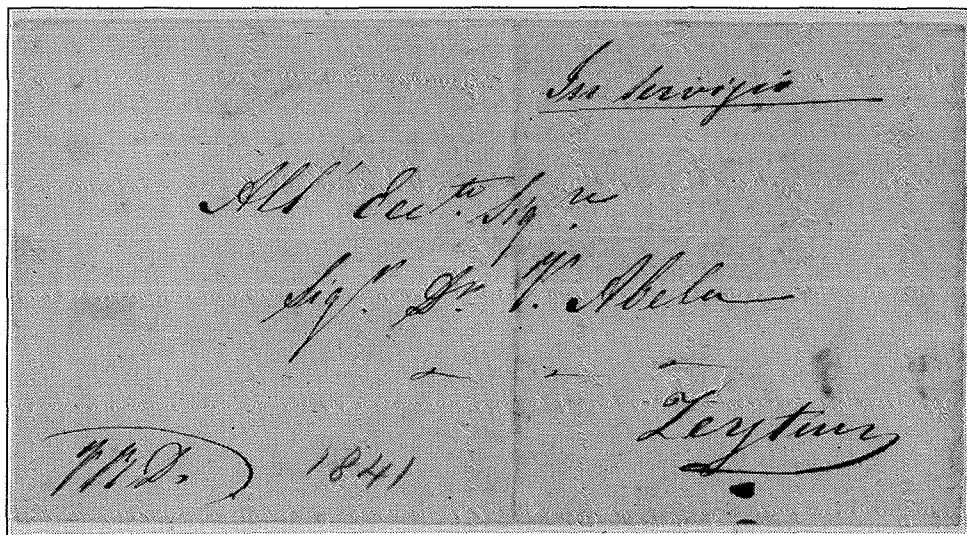 In servizio
All' Ecc.te Sig.re
Sig.r Dr. V. Abela
Zeytun
1841